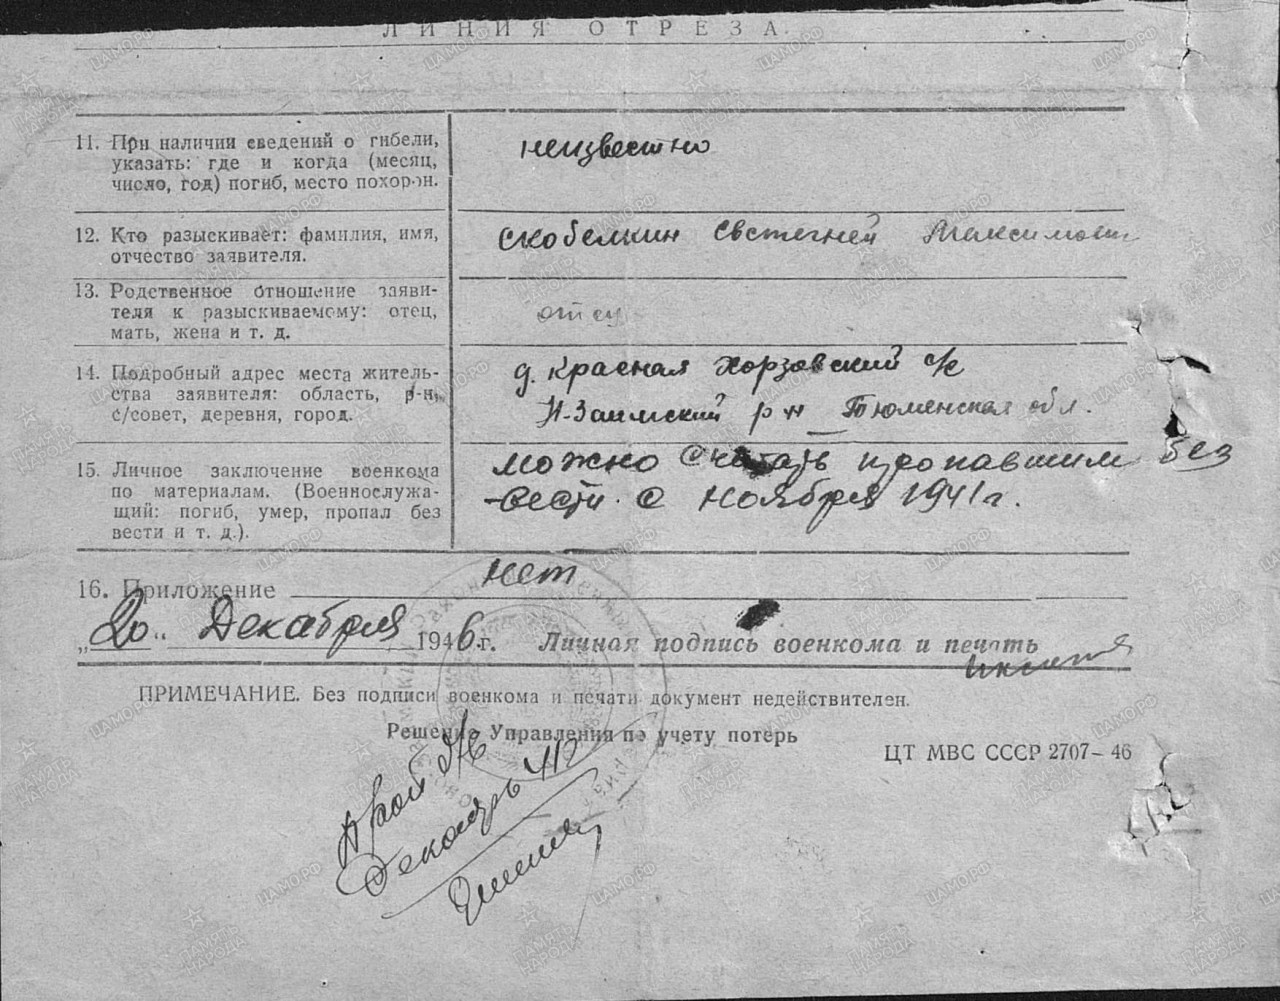 ЛИНИЯ ОТРЕЗА.
11. При наличии сведений о гибели,
указать: где и когда (месяц,
число, год) погиб, место похорон.
неизвестно
12. Кто разыскивает: фамилия, имя,
отчество заявителя.
Скобелкин Евстегней Максимович
13. Родственное отношение заяви-
теля к разыскиваемому: отец,
мать, жена и т. д.
отец
14. Подробный адрес места житель-
ства заявителя: область, р-н,
с/совет, деревня, город.
д. Красная Хорзовский с/с
Н-Заимский р-н Тюменская обл.
15. Личное заключение военкома
по материалам. (Военнослужа-
щий: погиб, умер, пропал без
вести и т. д.).
можно считать пропавшим без
вести с ноября 1941 г.
16. Приложение нет
„20" Декабря 1946 г. Личная подпись военкома и печать
ПРИМЕЧАНИЕ. Без подписи военкома и печати документ недействителен.
Решение Управления по учету потерь
ЦТ МВС СССР 2707-46
декабрь 41г